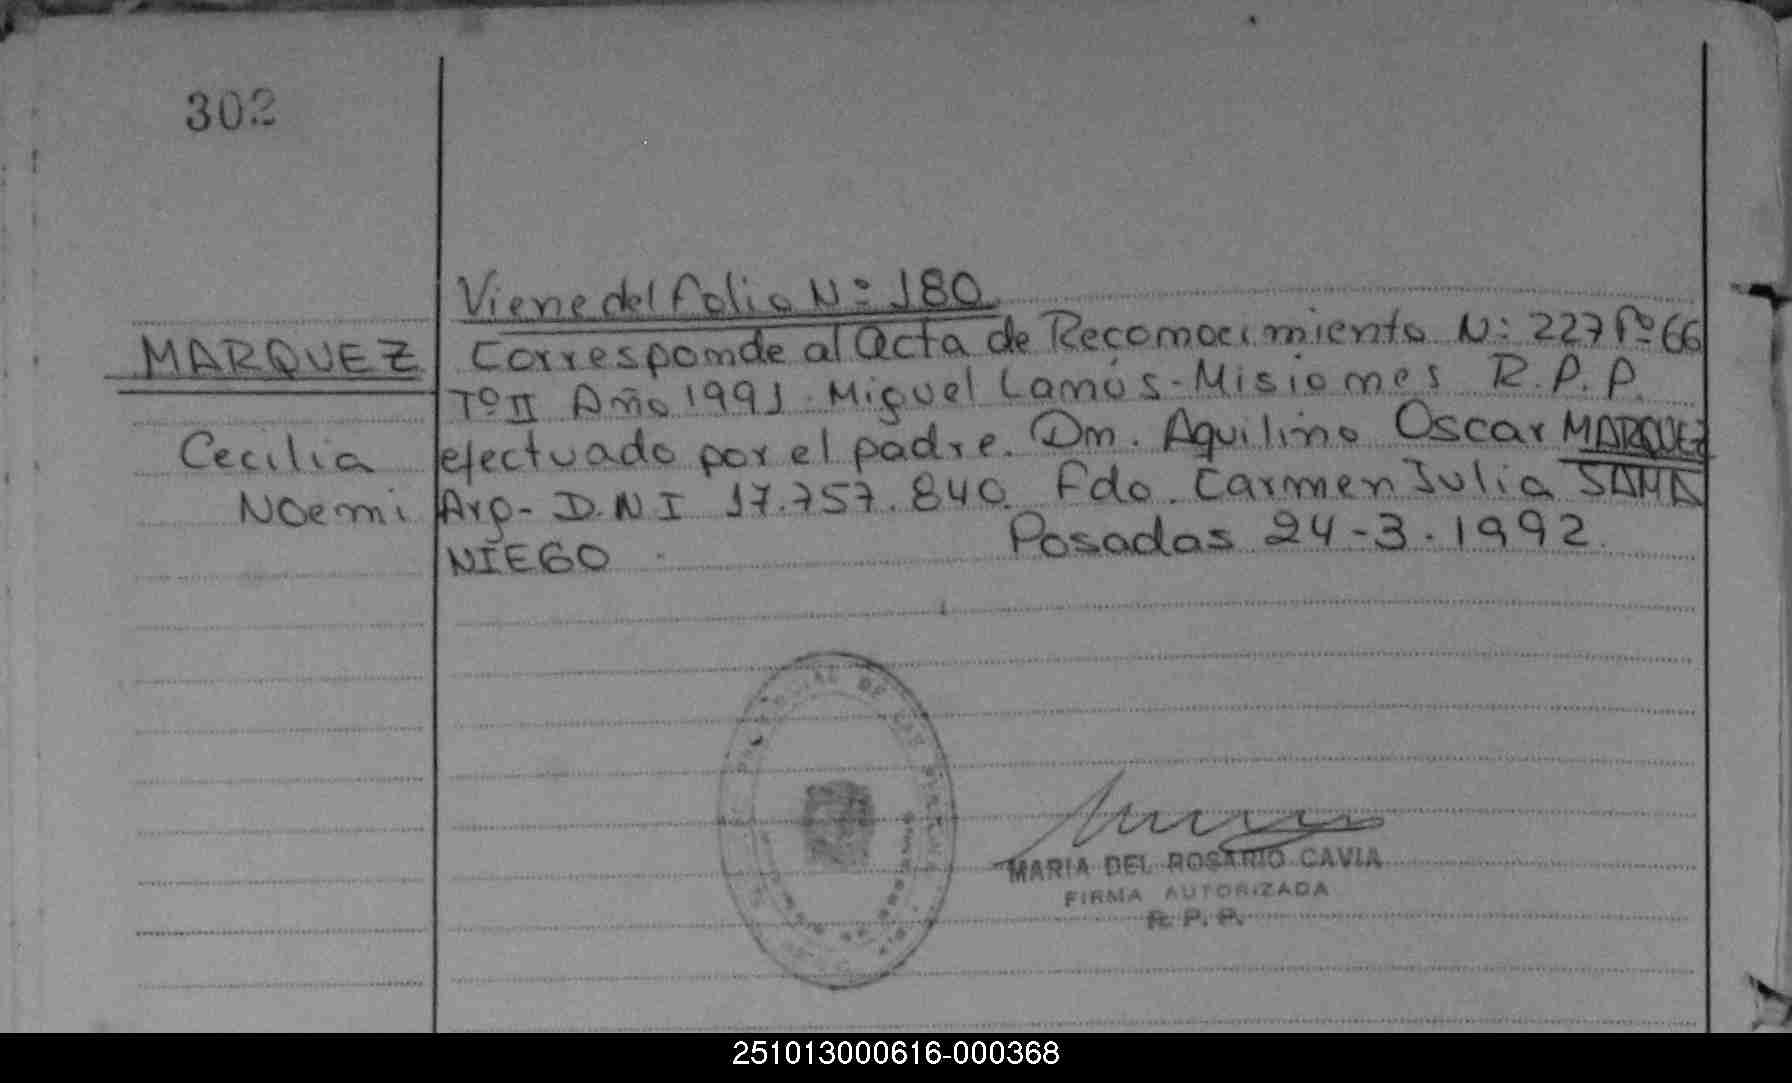 302
Viene del folio Nº 180
MARQUEZ
Corresponde al acta de Reconocimiento Nº 227 Fº 66
Tº II Año 1991. Miguel Lanús - Misiones R.P.P.
Cecilia
efectuado por el padre. Dn. Aquilino Oscar MARQUEZ
Noemi
Arg- D.N.I 17.757.840. Fdo. Carmen Julia SAMA
NIEGO
Posadas 24-3.1992.
MARIA DEL ROSARIO CAVIA
FIRMA AUTORIZADA
R. P. P.
251013000616-000368